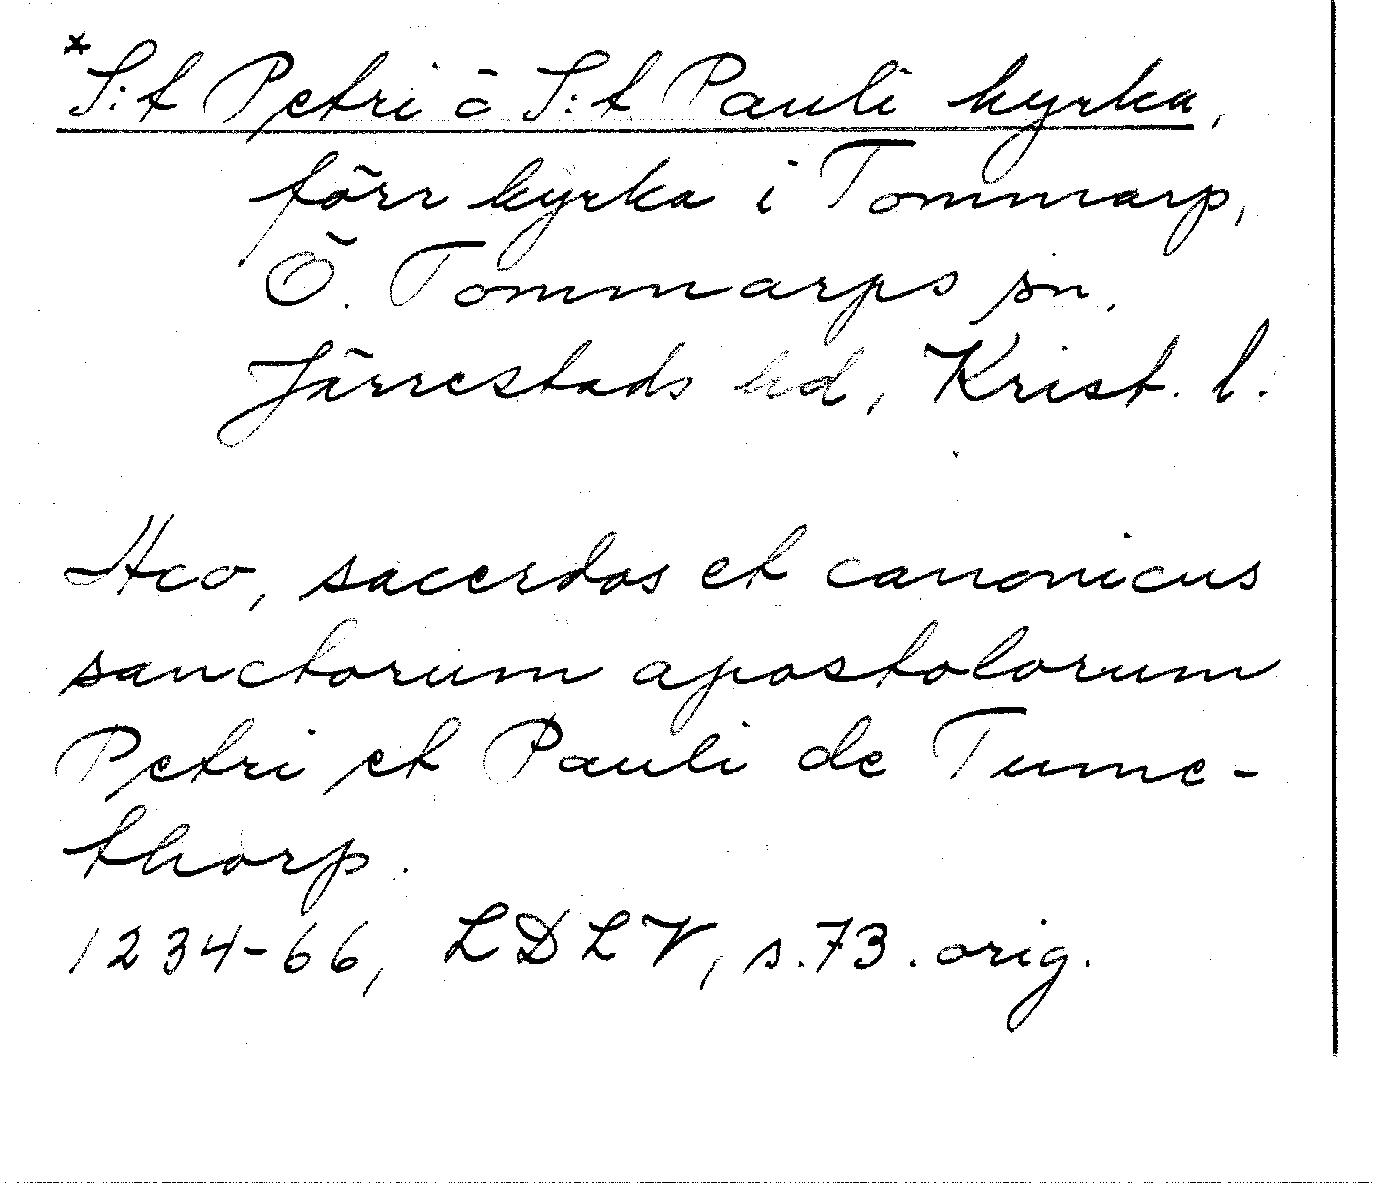 *S:t Petri o S:t Pauli kyrka,
förr kyrka i Tommarp,
Ö. Tommarps sn,
Järrestads hd, Krist. l.
Aco, sacerdos et canonicus
sanctorum apostolorum
Petri et Pauli de Tume-
thorp.
1234-66, LDLV, s. 73. orig.